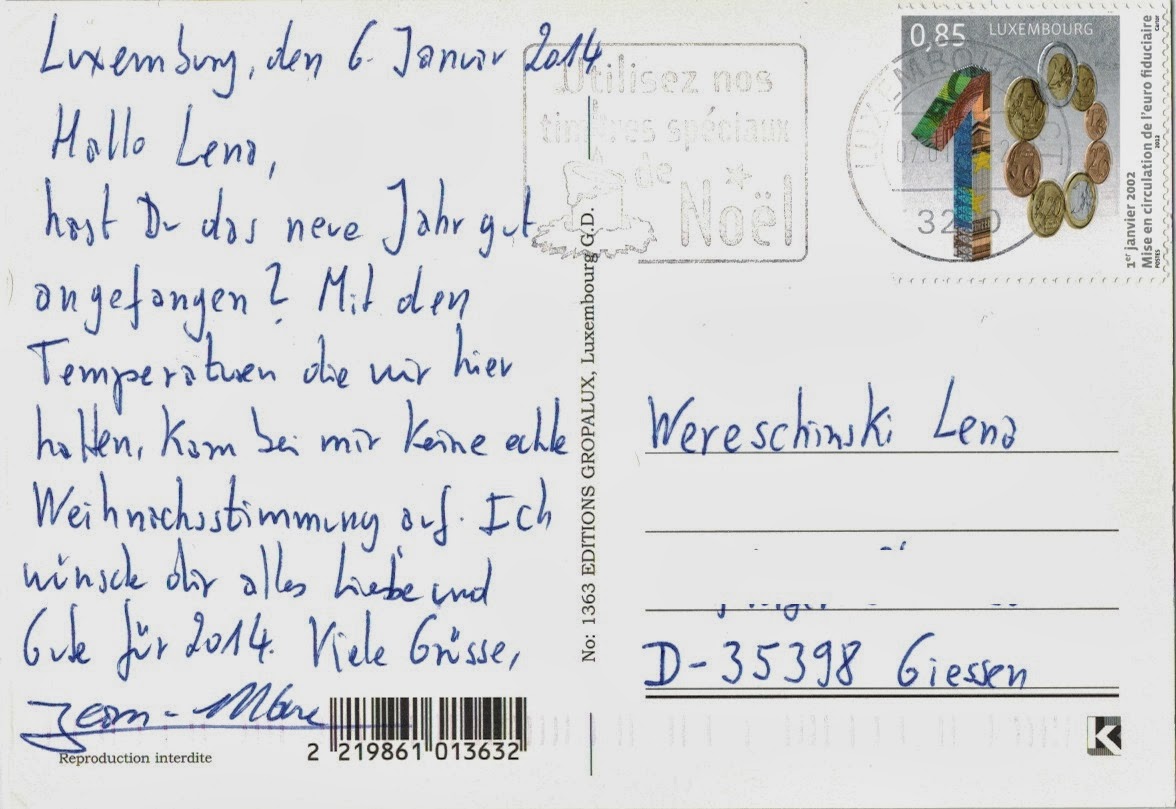 Luxemburg, den 6. Januar 2014
Hallo Lena,
hast Du das neue Jahr gut
angefangen? Mit den
Temperaturen die wir hier
hatten, kam bei mir keine echte
Weihnachsstimmung auf. Ich
wünsche dir alles Liebe und
Gute für 2014. Viele Grüsse,
Jean-Marc
Reproduction interdite
2 219861 013632
No: 1363 EDITIONS GROPALUX, Luxembourg G.D.
Utilisez nos
timbres spéciaux
de
Noël
0,85 LUXEMBOURG
1er janvier 2002
Mise en circulation de l'euro fiduciaire
POSTES 2012 Cartor
Wereschinski Lena
D-35398 Giessen
K